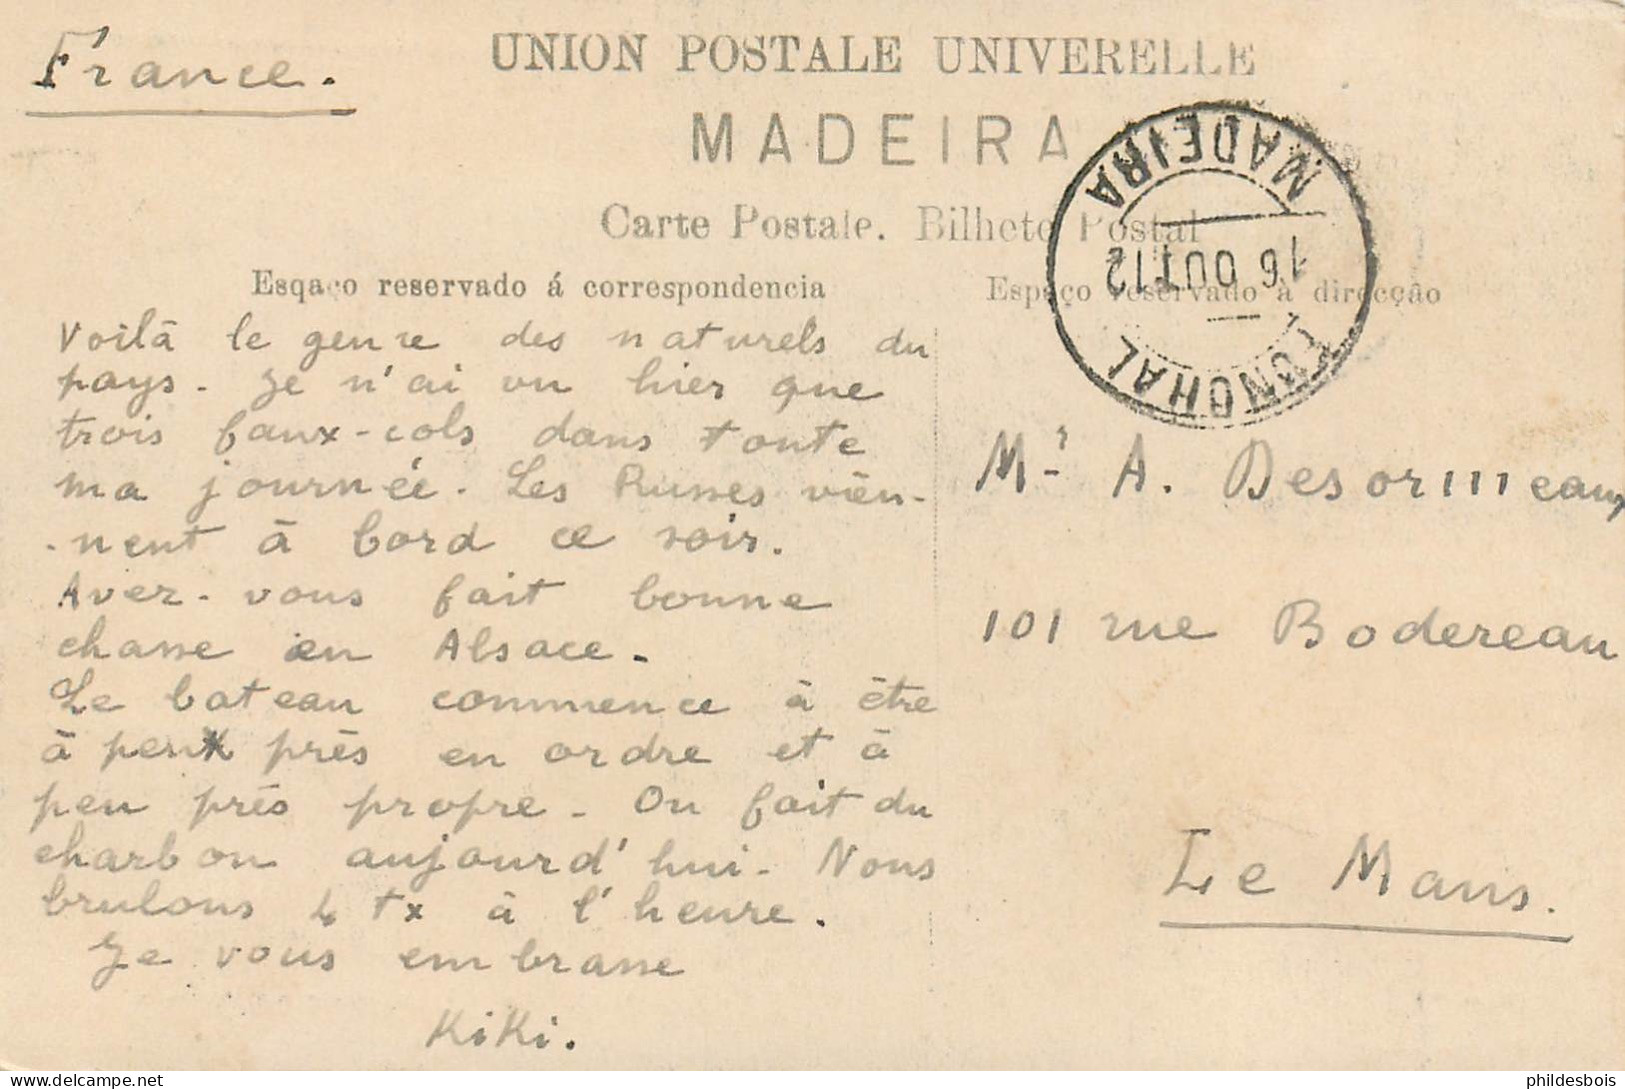 France.
UNION POSTALE UNIVERELLE
MADEIRA
Carte Postale. Bilhete Postal
Esqaço reservado á correspondencia
Espaço reservado à direcção
MADEIRA
16 OUT 12
FUNCHAL
Voilà le genre des naturels du
pays. Je n'ai vu hier que
trois faux-cols dans toute
ma journée. Les Russes vien-
-nent à bord ce soir.
Avez-vous fait bonne
chasse en Alsace.
Le bateau commence à être
à peux près en ordre et à
peu près propre. On fait du
charbon aujourd'hui. Nous
brulons 4 tx à l'heure.
Je vous embrasse
KiKi.
Mr A. Desormeaux
101 rue Bodereau
Le Mans.
phildesbois